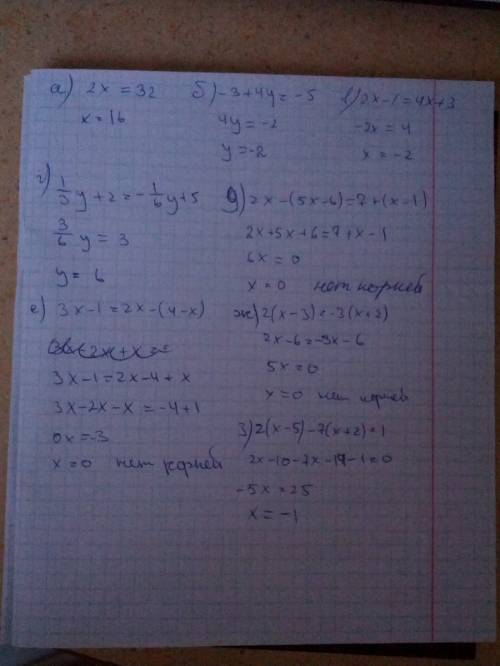 а) 2x = 32
x = 16
б) -3+4y = -5
4y = -2
y = -2
в) 2x-1 = 4x+3
-2x = 4
x = -2
г) 1/3 y + 2 = - 1/6 y + 5
3/6 y = 3
y = 6
д) 2x-(5x-6)=7+(x-1)
2x+5x+6=7+x-1
6x = 0
x = 0 нет корней
е) 3x-1=2x-(4-x)
3x-1=2x-4+x
3x-2x-x = -4+1
0x=-3
x=0 нет корней
ж) 2(x-3)=-3(x+2)
2x-6=-3x-6
5x=0
x=0 нет корней
з) 2(x-5)-7(x+2)=1
2x-10-7x-14-1=0
-5x=25
x = -1